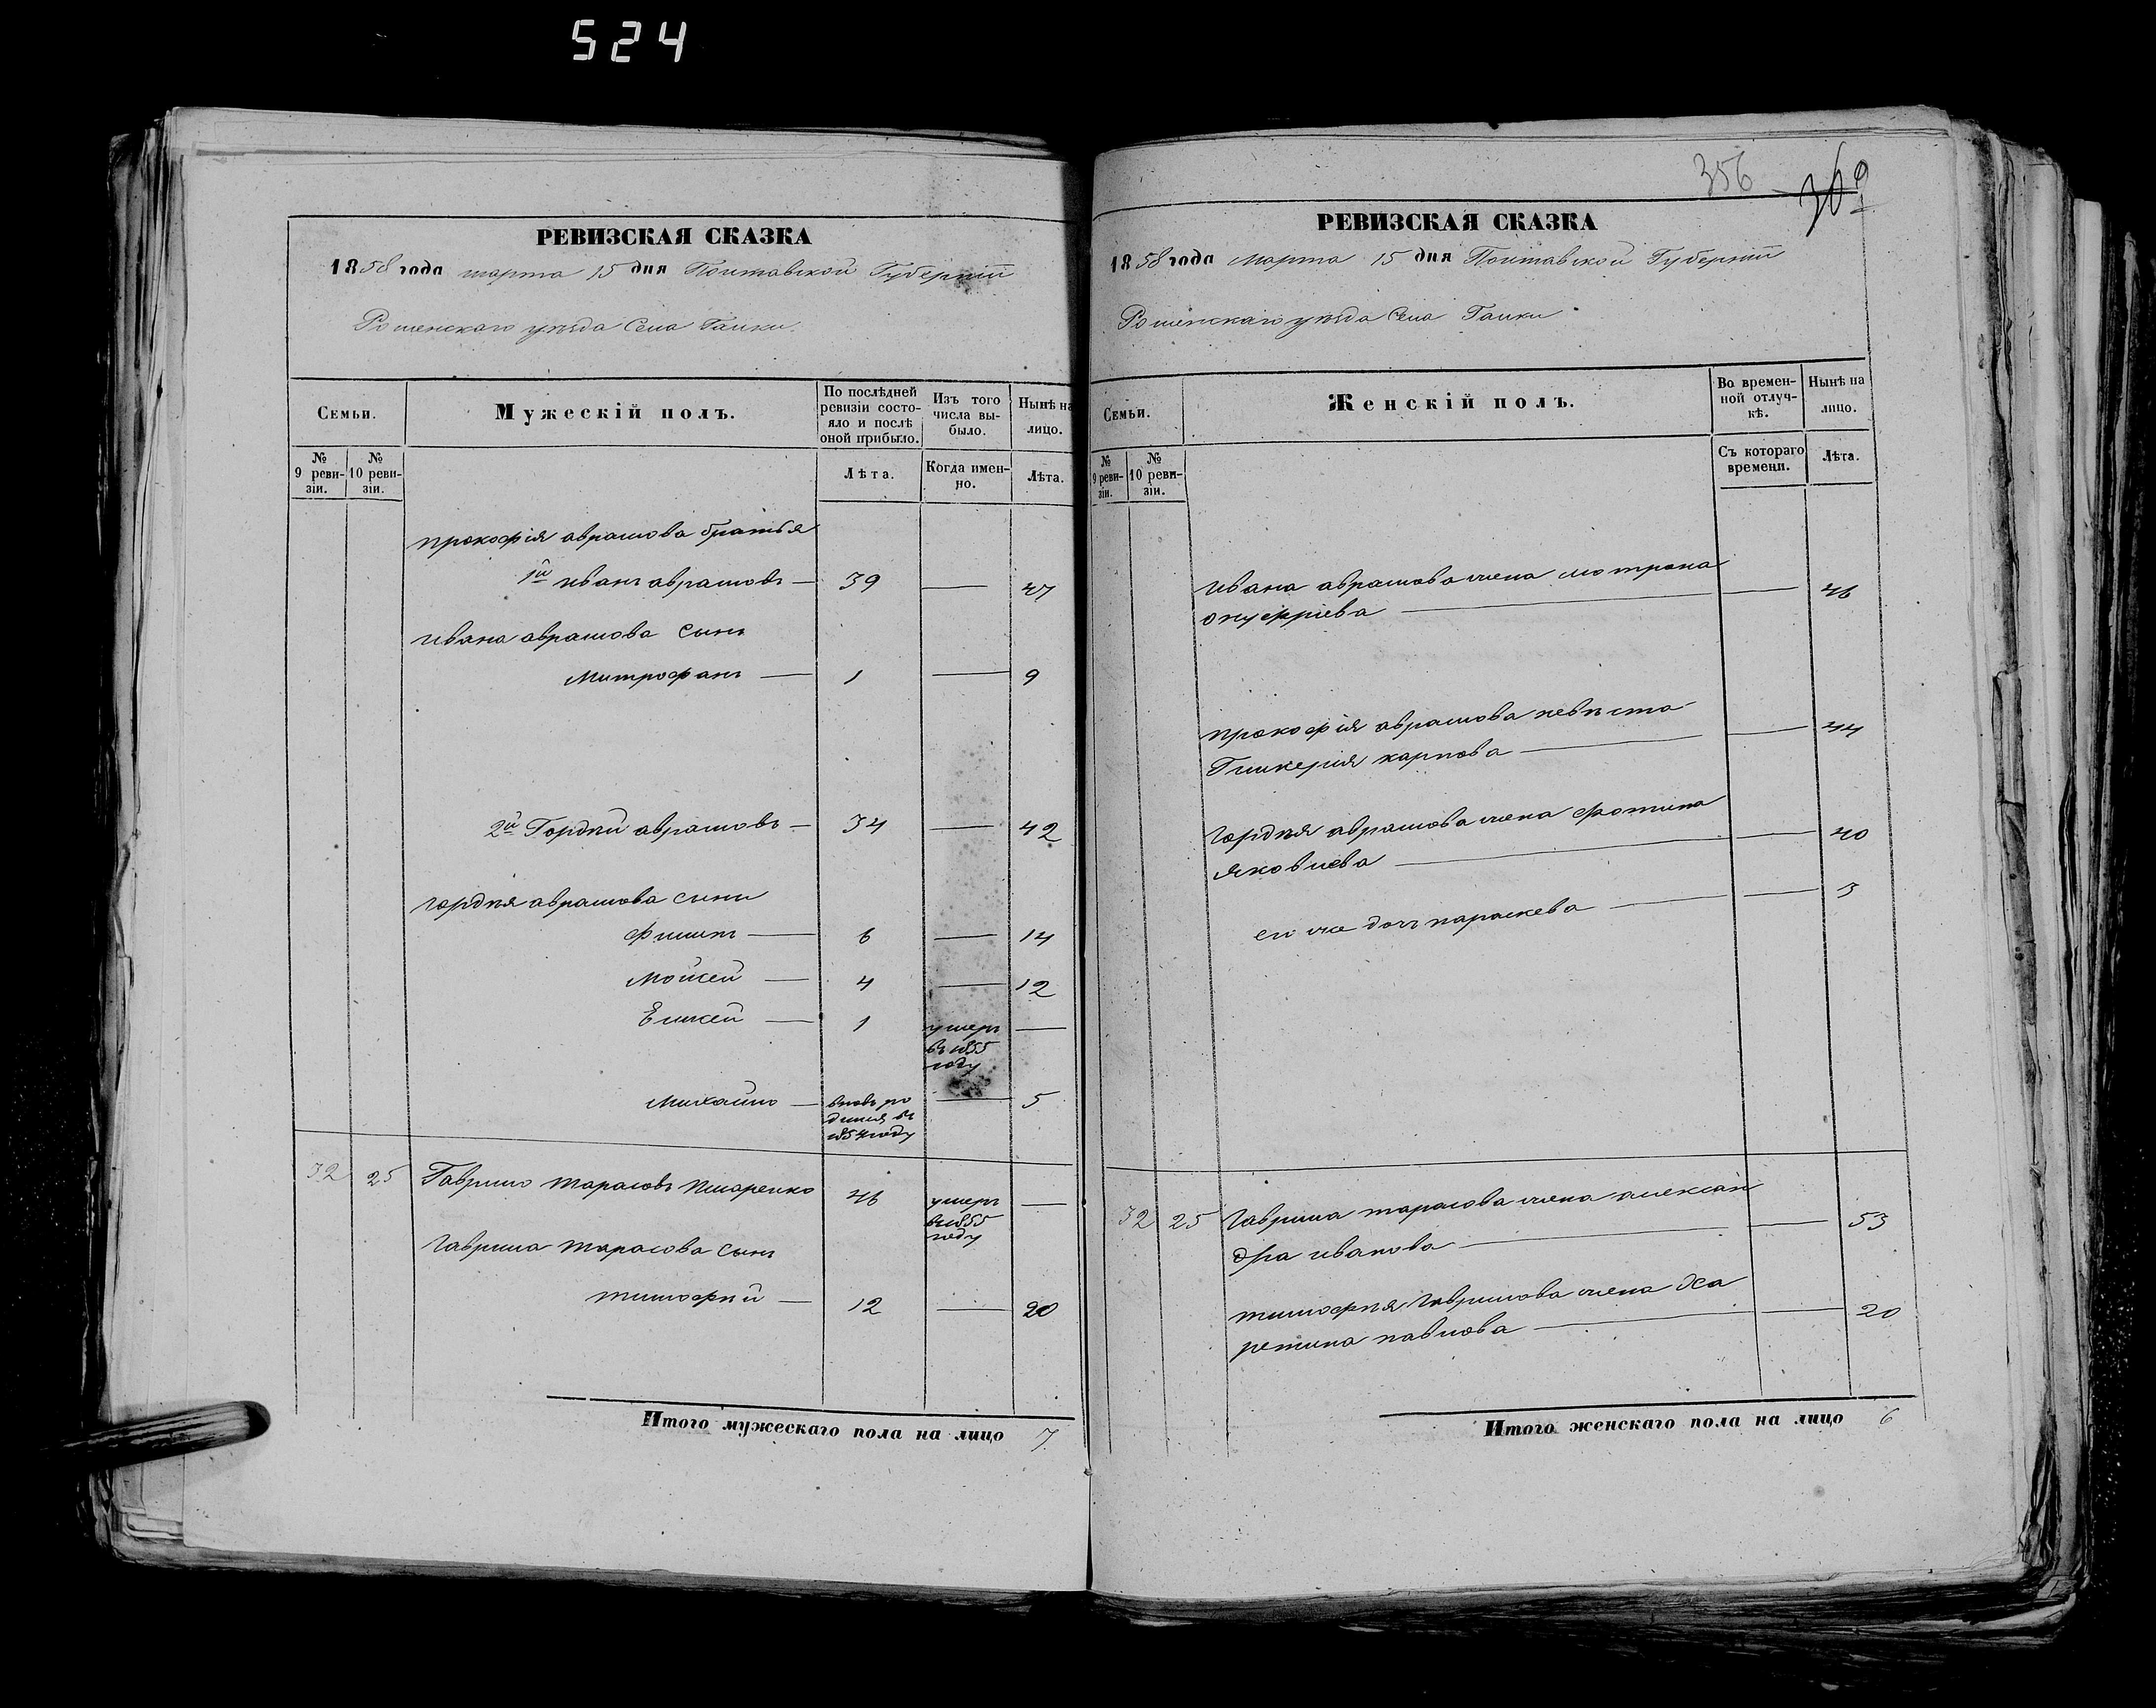 524
РЕВИЗСКАЯ СКАЗКА
1858 года марта 15 дня Полтавской Губерніи
Роменскаго уѣзда Села Галки.
Семьи.
Мужескій полъ.
По послѣдней ревизіи состояло и послѣ оной прибыло.
Изъ того числа выбыло.
Нынѣ на лицо.
№ 9 ревизіи.
№ 10 ревизіи.
Лѣта.
Когда именно.
Лѣта.
прокофія аврамова братья
1й иванъ аврамовъ — 39 — 47
ивана аврамова сынъ
Митрофанъ — 1 — 9
2й Гордѣй аврамовъ — 34 — 42
гордѣя аврамова сыни
филипъ — 6 — 14
Мойсей — 4 — 12
Елисей — 1 умеръ —
въ 1855
году
Михайло — вновь ро — 5
дился въ
1854 году
32 25 Гаврило тарасовъ 46 умеръ —
въ 1855
году
гаврила тарасова сынъ
тимофѣй — 12 — 20
Итого мужескаго пола на лицо 7
356 369
РЕВИЗСКАЯ СКАЗКА
1858 года марта 15 дня Полтавской Губерніи
Роменскаго уѣзда Села Галки
Семьи.
Женскій полъ.
Во временной отлучкѣ.
Нынѣ на лицо.
№ 9 ревизіи.
№ 10 ревизіи.
Съ котораго времени.
Лѣта.
ивана аврамова жена мотрона
онуфріева — — 46
прокофія аврамова невѣста
Гликерія карпова — — 44
гордѣя аврамова жена фотина
яковлева — — 40
его же дочь параскева — — 3
32 25 гаврила тарасова жена алексан
дра иванова — — 53
тимофѣя гаврилова жена ха
ретина павлова — — 20
Итого женскаго пола на лицо 6